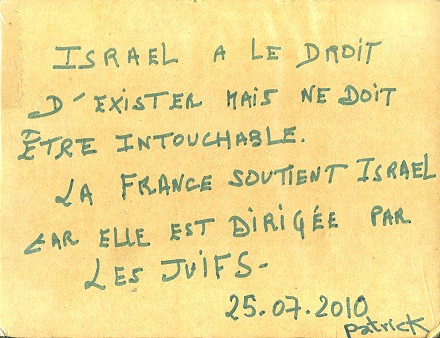 ISRAEL A LE DROIT
D'EXISTER MAIS NE DOIT
ÊTRE INTOUCHABLE.
LA FRANCE SOUTIENT ISRAEL
CAR ELLE EST DIRIGÉE PAR
LES JUIFS-
25.07.2010
Patrick